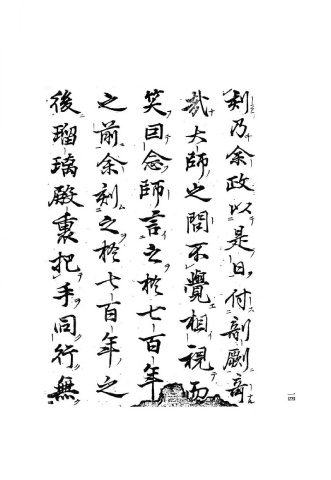 刻乃余政以是日付剞劂奇
哉大師之問不覺相視而
笑囙念師言之於七百年
之前余刻之於七百年之
後瑠璃殿裏把手同行無